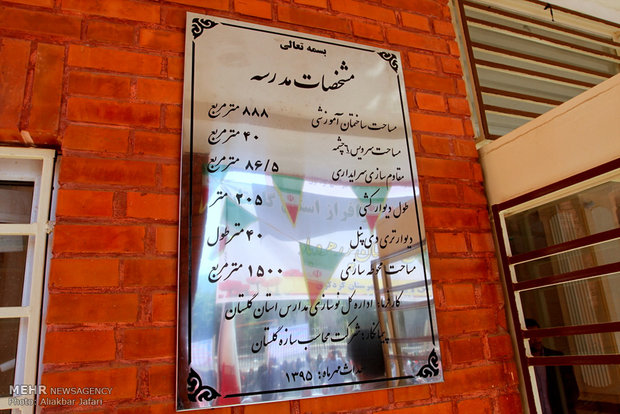 بسمه تعالی
مشخصات مدرسه
مساحت ساختمان آموزشی ۸۸۸ مترمربع
مساحت سرویس ۶ چشمه ۴۰ مترمربع
مقاوم سازی سرایداری ۸۶/۵ مترمربع
طول دیوارکشی ۲۰۵ متر
دیوار تری دی پنل ۴۰ متر طول
مساحت محوطه سازی ۱۵۰۰ مترمربع
کارفرما: اداره کل نوسازی مدارس استان گلستان
پیمانکار: شرکت محاسب سازه گلستان
مهرماه: ۱۳۹۵
MEHR NEWSAGENCY
Photo: Aliakbar Jafari